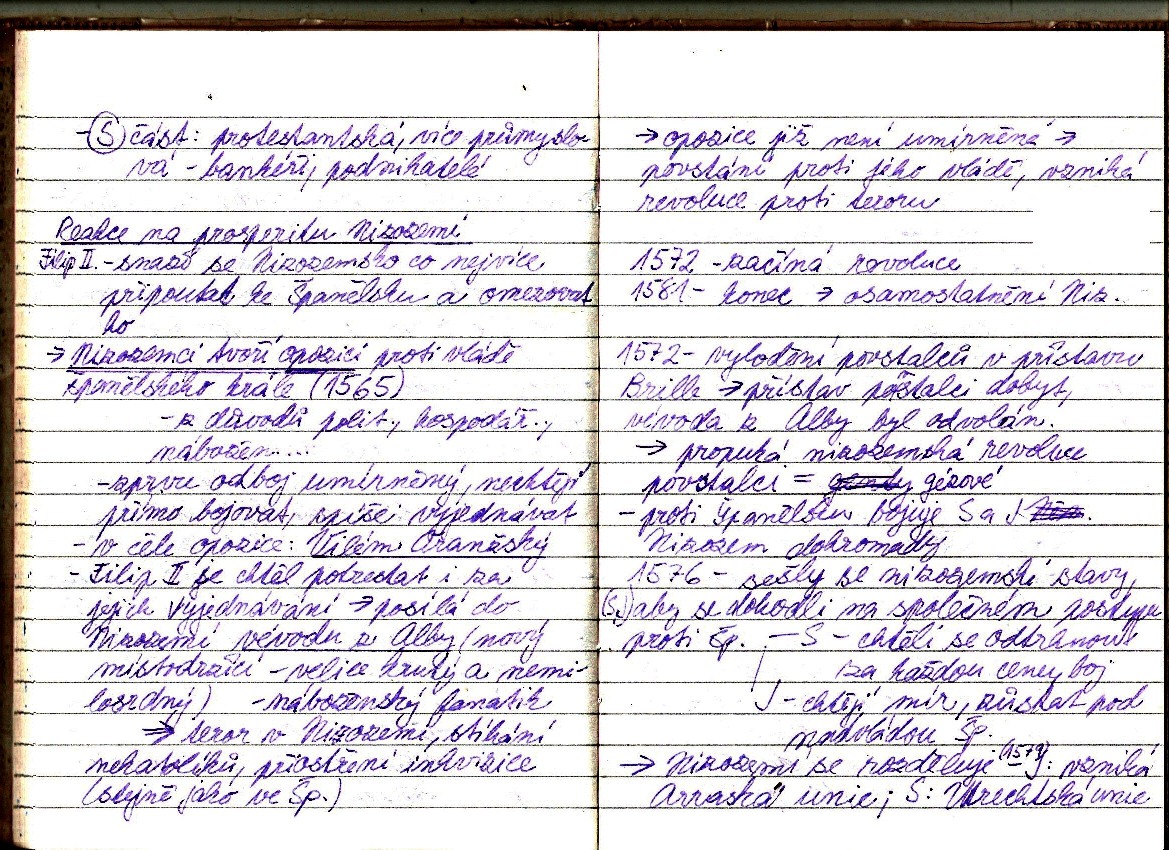 - (S) část: protestantská, více průmyslo-
vá - bankéři, podnikatelé
Reakce na prosperitu Nizozemí
Filip II. - snaží se Nizozemsko co nejvíce
připoutat ke Španělsku a omezovat
ho
→ Nizozemci tvoří opozici proti vládě
španělského krále (1565)
- z důvodů polit., hospodář.,
nábožen....
- zprvu odboj umírněný, nechtějí
přímo bojovat, spíše vyjednávat
- v čele opozice: Vilém Oranžský
- Filip II je chtěl potrestat i za
jejich vyjednávání → posílá do
Nizozemí vévodu z Alby (nový
místodržící - velice krutý a nemi-
losrdný) - náboženský fanatik
⇒ teror v Nizozemí, stíhání
nekatolíků, přiostření inkvizice
(stejně jako ve Šp.)
→ opozice již není umírněná →
povstání proti jeho vládě, vzniká
revoluce proti teroru
1572 - začíná revoluce
1581 - konec → osamostatnění Niz.
1572 - vylodění povstalců v přístavu
Brille → přístav postalci dobyt,
vévoda z Alby byl odvolán.
→ propuká nizozemská revoluce
povstalci = gézové
- proti Španělsku bojuje S a J
Nizozem dohromady
1576 - sešly se nizozemské stavy,
aby se dohodli na společném postupu
proti Šp. - S - chtěli se odtrhnout
za každou cenu, boj
J - chtějí mír, zůstat pod
nadvládou Šp.
→ Nizozemí se rozděluje (1579) J: vzniká
Arraská unie; S: Utrechtská unie